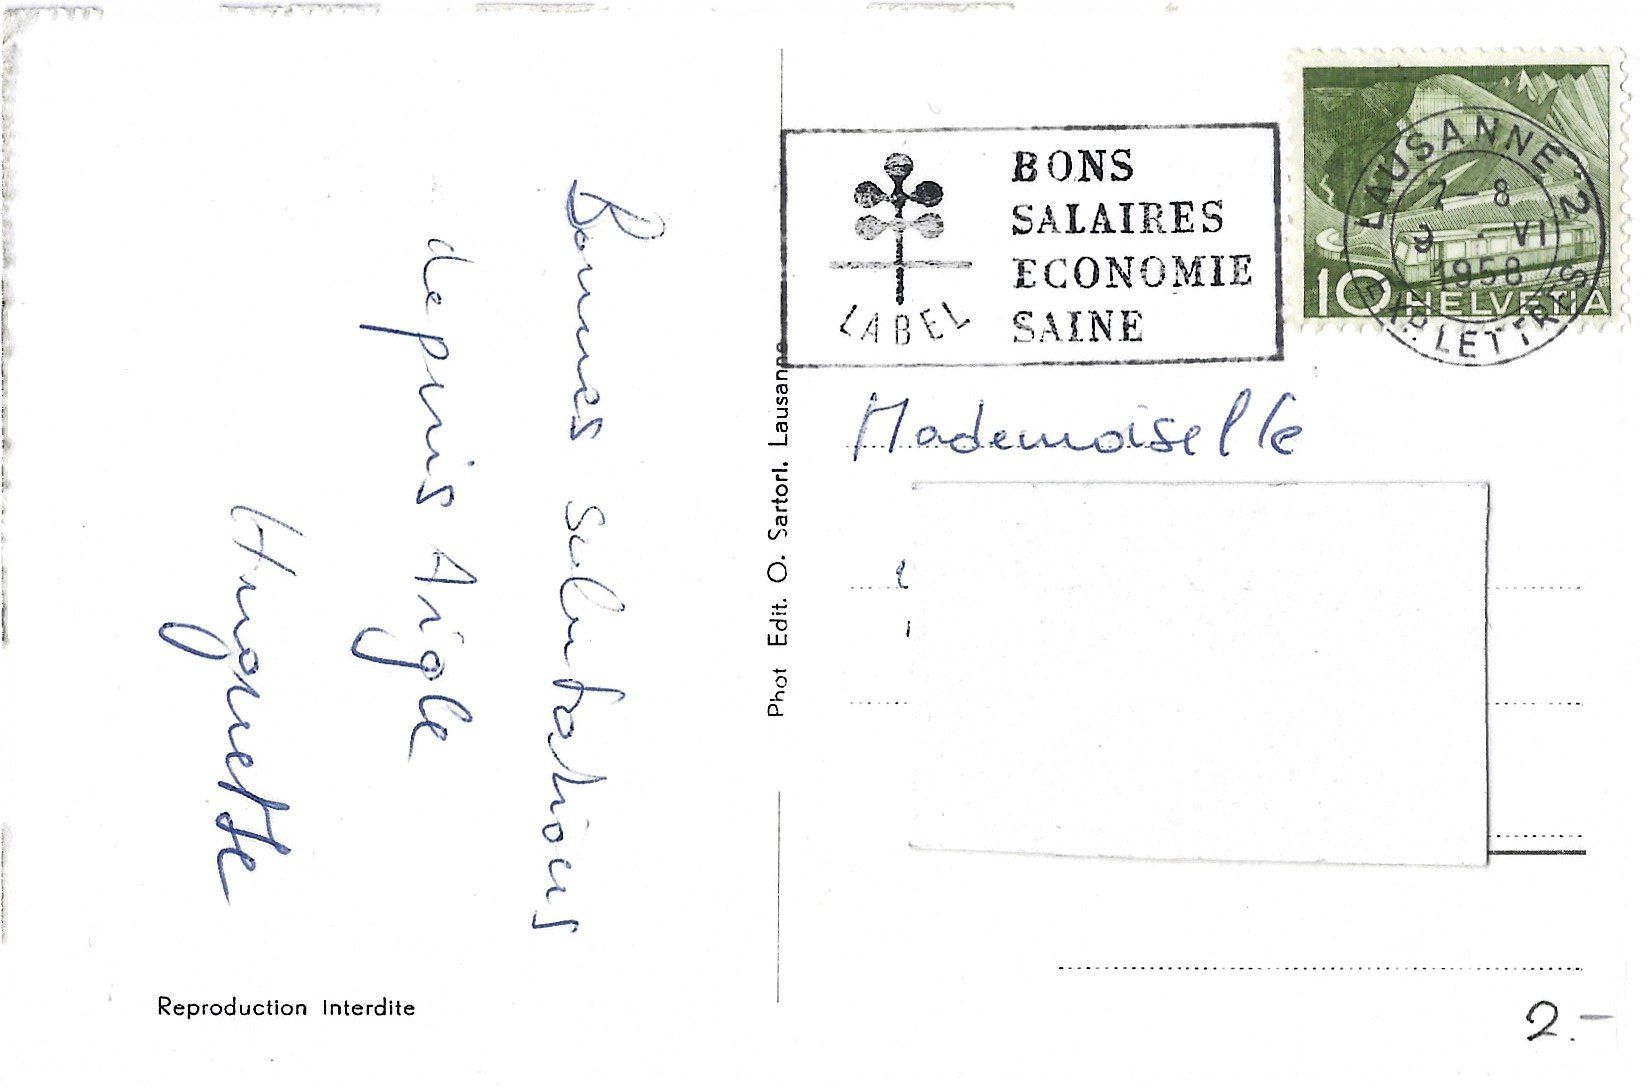 Bonnes salutations
depuis Aigle
Huguette
Reproduction Interdite
Phot Edit. O. Sartori. Lausanne
LABEL
BONS
SALAIRES
ECONOMIE
SAINE
LAUSANNE 2
7-8
9.VI
1958
EXP. LETTRES
10 HELVETIA
Mademoiselle
2.-